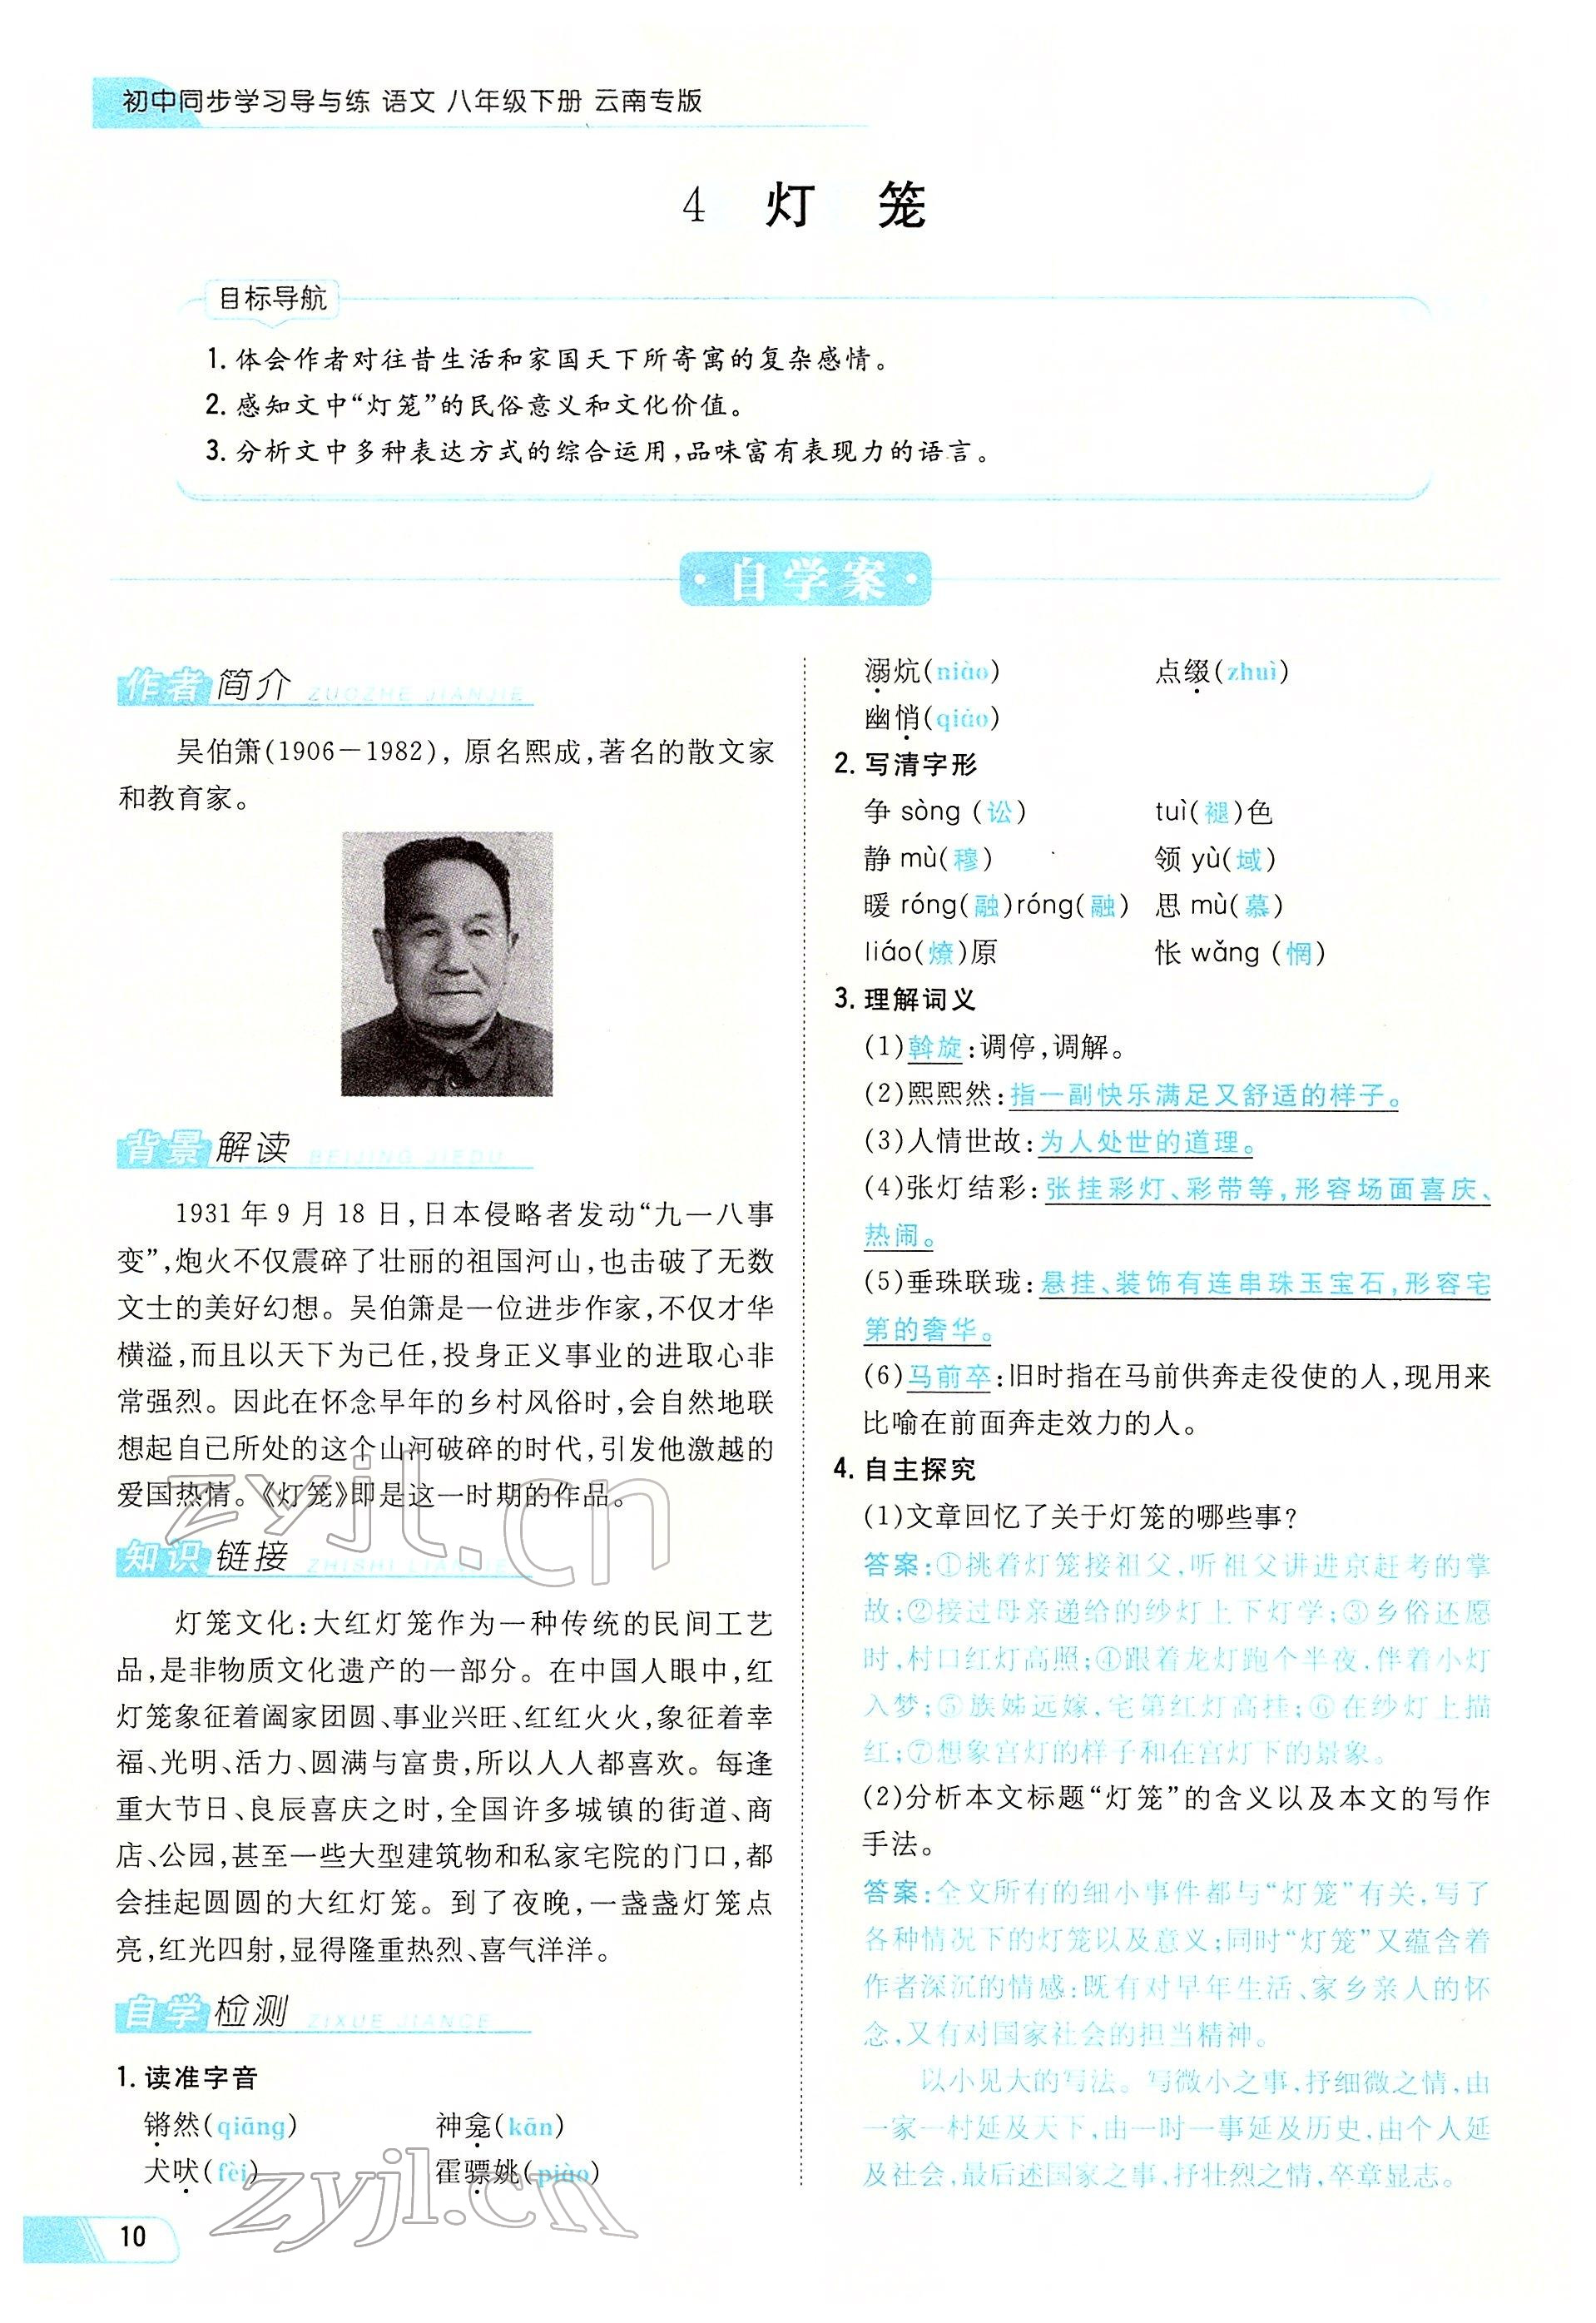 初中同步学习导与练 语文 八年级下册 云南专版
4 灯 笼
目标导航
1. 体会作者对往昔生活和家国天下所寄寓的复杂感情。
2. 感知文中“灯笼”的民俗意义和文化价值。
3. 分析文中多种表达方式的综合运用,品味富有表现力的语言。
·自学案·
作者简介 ZUOZHE JIANJIE
吴伯箫(1906－1982), 原名熙成,著名的散文家
和教育家。
背景解读 BEIJING JIEDU
1931 年 9 月 18 日,日本侵略者发动“九一八事
变”,炮火不仅震碎了壮丽的祖国河山,也击破了无数
文士的美好幻想。吴伯箫是一位进步作家,不仅才华
横溢,而且以天下为己任,投身正义事业的进取心非
常强烈。因此在怀念早年的乡村风俗时,会自然地联
想起自己所处的这个山河破碎的时代,引发他激越的
爱国热情。《灯笼》即是这一时期的作品。
知识链接 ZHISHI LIANJIE
灯笼文化:大红灯笼作为一种传统的民间工艺
品,是非物质文化遗产的一部分。在中国人眼中,红
灯笼象征着阖家团圆、事业兴旺、红红火火,象征着幸
福、光明、活力、圆满与富贵,所以人人都喜欢。每逢
重大节日、良辰喜庆之时,全国许多城镇的街道、商
店、公园,甚至一些大型建筑物和私家宅院的门口,都
会挂起圆圆的大红灯笼。到了夜晚,一盏盏灯笼点
亮,红光四射,显得隆重热烈、喜气洋洋。
自学检测 ZIXUE JIANCE
1. 读准字音
锵然(qiāng) 神龛(kān)
犬吠(fèi) 霍骠姚(piào)
溺炕(niào) 点缀(zhuì)
幽悄(qiǎo)
2. 写清字形
争 sòng (讼) tuì(褪)色
静 mù(穆) 领 yù(域)
暖 róng(融)róng(融) 思 mù(慕)
liáo(燎)原 怅 wǎng (惘)
3. 理解词义
(1)斡旋:调停,调解。
(2)熙熙然:指一副快乐满足又舒适的样子。
(3)人情世故:为人处世的道理。
(4)张灯结彩:张挂彩灯、彩带等,形容场面喜庆、
热闹。
(5)垂珠联珑:悬挂、装饰有连串珠玉宝石,形容宅
第的奢华。
(6)马前卒:旧时指在马前供奔走役使的人,现用来
比喻在前面奔走效力的人。
4. 自主探究
(1)文章回忆了关于灯笼的哪些事?
答案:①挑着灯笼接祖父,听祖父讲进京赶考的掌
故;②接过母亲递给的纱灯上下灯学;③乡俗还愿
时,村口红灯高照;④跟着龙灯跑个半夜,伴着小灯
入梦;⑤族姊远嫁,宅第红灯高挂;⑥在纱灯上描
红;⑦想象宫灯的样子和在宫灯下的景象。
(2)分析本文标题“灯笼”的含义以及本文的写作
手法。
答案:全文所有的细小事件都与“灯笼”有关,写了
各种情况下的灯笼以及意义;同时“灯笼”又蕴含着
作者深沉的情感:既有对早年生活、家乡亲人的怀
念,又有对国家社会的担当精神。
以小见大的写法。写微小之事,抒细微之情,由
一家一村延及天下,由一时一事延及历史,由个人延
及社会,最后述国家之事,抒壮烈之情,卒章显志。
zyjl.cn
zyjl.cn
10